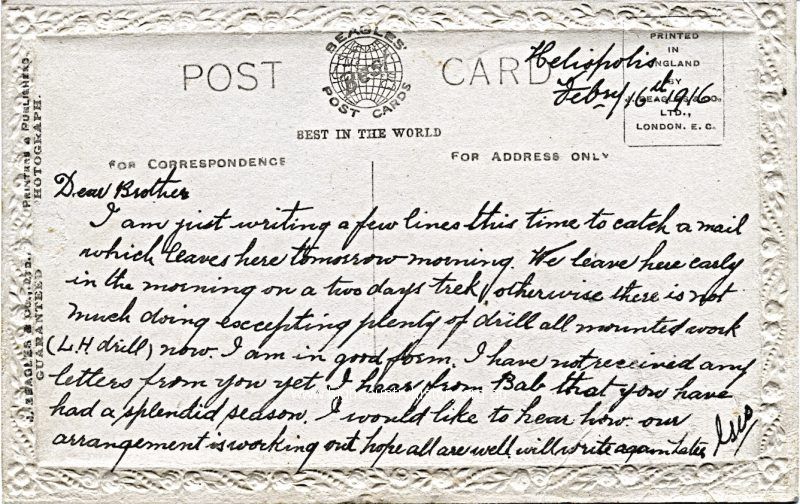 BEAGLES'
Best
POST CARDS
POST CARD
BEST IN THE WORLD
PRINTED
IN
ENGLAND
BY
J. BEAGLES & CO.,
LTD.,
LONDON. E. C.
Heliopolis
Febry 16th 1916
FOR CORRESPONDENCE
FOR ADDRESS ONLY
J. BEAGLES & CO., LTD., PRINTERS & PUBLISHERS.
GUARANTEED HOTOGRAPH.
Dear Brother
I am just writing a few lines this time to catch a mail
which leaves here tomorrow morning. We leave here early
in the morning on a two days trek, otherwise there is not
much doing exccepting plenty of drill all mounted work
(L.H drill) now. I am in good form. I have not received any
letters from you yet. I hear from Bab that you have
had a splendid season. I would like to hear how our
arrangement is working out hope all are well. will write again later